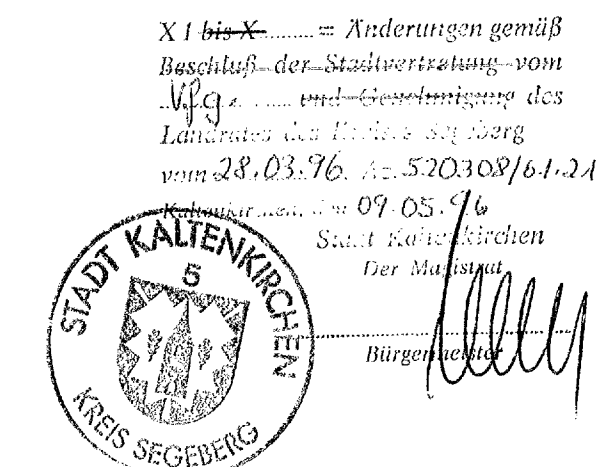 X 1 bis X ......... = Änderungen gemäß
Beschluß der Stadtvertretung vom
..Vfg. ........ und Genehmigung des
Landrates des Kreises Segeberg
vom 28.03.96. Az. 520308/61.21
Kaltenkirchen, den 09.05.96
Stadt Kaltenkirchen
Der Magistrat
Bürgermeister
STADT KALTENKIRCHEN
5
KREIS SEGEBERG